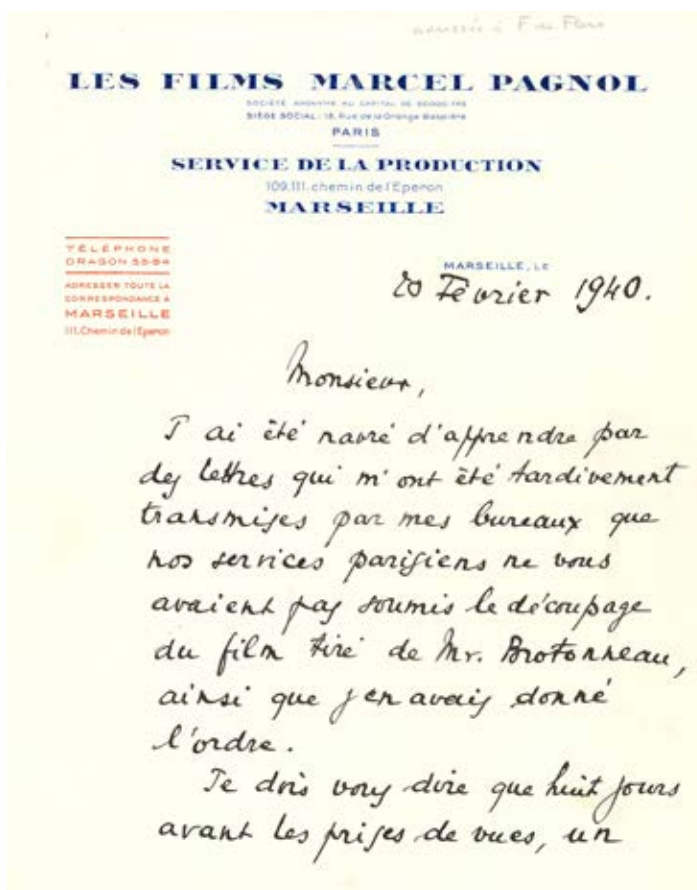 adressée à F de Flers
LES FILMS MARCEL PAGNOL
SOCIÉTÉ ANONYME AU CAPITAL DE FRS
SIÈGE SOCIAL: 13, Rue de la Grange Batelière
PARIS
SERVICE DE LA PRODUCTION
109,111. chemin de l'Eperon
MARSEILLE
TÉLÉPHONE
DRAGON 55-84
ADRESSER TOUTE LA
CORRESPONDANCE À
MARSEILLE
111, Chemin de l'Eperon
MARSEILLE, LE
20 Février 1940.
Monsieur,
J ai été navré d'apprendre par
des lettres qui m'ont été tardivement
transmises par mes bureaux que
nos services parisiens ne vous
avaient pas soumis le découpage
du film tiré de Mr. Brotonneau,
ainsi que j'en avais donné
l'ordre.
Je dois vous dire que huit jours
avant les prises de vues, un